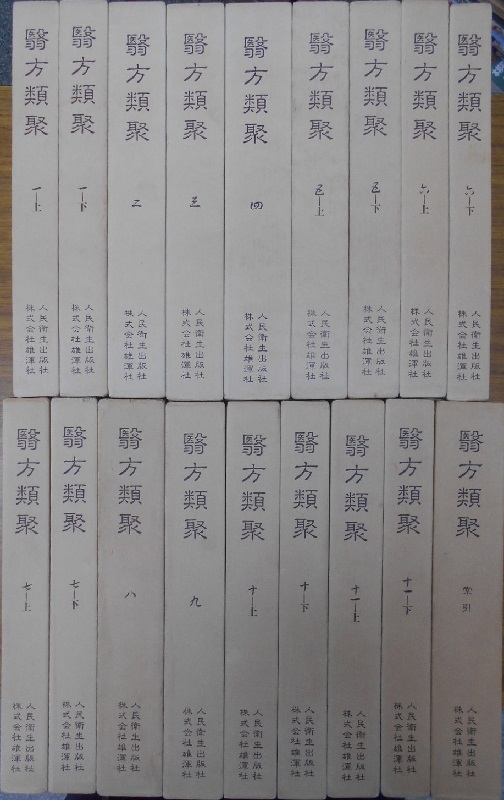 醫方類聚
一—上
人民衛生出版社
株式会社雄渾社
醫方類聚
一—下
人民衛生出版社
株式会社雄渾社
醫方類聚
二
人民衛生出版社
株式会社雄渾社
醫方類聚
三
人民衛生出版社
株式会社雄渾社
醫方類聚
四
人民衛生出版社
株式会社雄渾社
醫方類聚
五—上
人民衛生出版社
株式会社雄渾社
醫方類聚
五—下
人民衛生出版社
株式会社雄渾社
醫方類聚
六—上
人民衛生出版社
株式会社雄渾社
醫方類聚
六—下
人民衛生出版社
株式会社雄渾社
醫方類聚
七—上
人民衛生出版社
株式会社雄渾社
醫方類聚
七—下
人民衛生出版社
株式会社雄渾社
醫方類聚
八
人民衛生出版社
株式会社雄渾社
醫方類聚
九
人民衛生出版社
株式会社雄渾社
醫方類聚
十—上
人民衛生出版社
株式会社雄渾社
醫方類聚
十—下
人民衛生出版社
株式会社雄渾社
醫方類聚
十一—上
人民衛生出版社
株式会社雄渾社
醫方類聚
十一—下
人民衛生出版社
株式会社雄渾社
醫方類聚
索引
人民衛生出版社
株式会社雄渾社